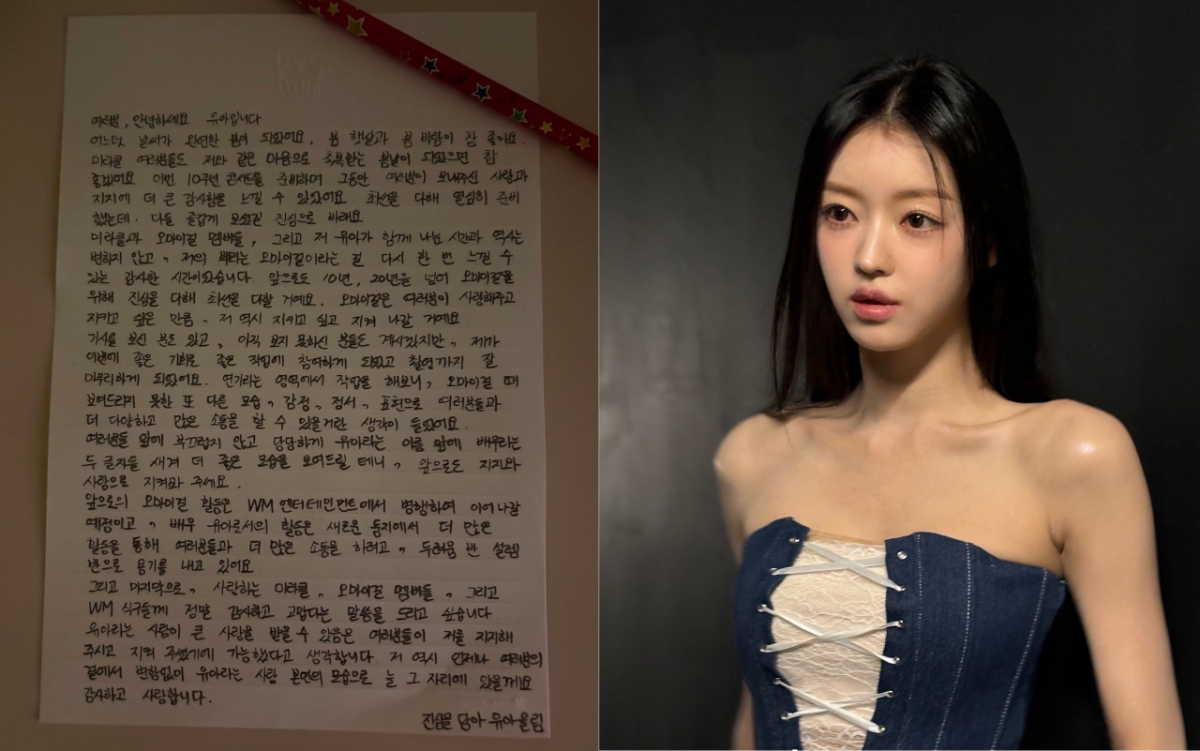 여러분, 안녕하세요 유아입니다
어느덧 날씨가 완연한 봄이 되었어요. 봄 햇살과 봄 바람이 참 좋아요.
미라클 여러분들도 저와 같은 마음으로 행복한 봄날이 되었으면 참
좋겠어요 이번 10주년 콘서트를 준비하며 그동안 여러분이 보내주신 사랑과
지지에 더 큰 감사함을 느낄 수 있었어요. 최선을 다해 열심히 준비
했는데. 다들 즐겁게 보셨길 진심으로 바래요
미라클과 오마이걸 멤버들, 그리고 저 유아가 함께 나눈 시간과 역사는
변하지 않고, 저의 뿌리는 오마이걸이라는 걸 다시 한 번 느낄 수
있는 감사한 시간이었습니다. 앞으로도 10년, 20년을 넘어 오마이걸을
위해 진심을 다해 최선을 다할 거예요. 오마이걸은 여러분이 사랑해주고
지키고 싶은 만큼, 저 역시 지키고 싶고 지켜 나갈 거예요
기사를 보신 분도 있고, 아직 보지 못하신 분들도 계시겠지만, 제가
이번에 좋은 기회로 좋은 작업에 참여하게 되었고 촬영까지 잘
마무리하게 되었어요. 연기라는 영역에서 작업을 해보니, 오마이걸 때
보여드리지 못한 또 다른 모습, 감정, 정서, 표현으로 여러분들과
더 다양하고 많은 소통을 할 수 있을거란 생각이 들었어요.
여러분들 앞에 부끄럽지 않고 당당하게 유아라는 이름 앞에 배우라는
두 글자를 새겨 더 좋은 모습을 보여드릴 테니, 앞으로도 지지와
사랑으로 지켜봐 주세요.
앞으로의 오마이걸 활동은 WM엔터테인먼트에서 병행하여 이어나갈
예정이고, 배우 유아로서의 활동은 새로운 둥지에서 더 많은
활동을 통해 여러분들과 더 많은 소통을 하려고, 두려움 반 설렘
반으로 용기를 내고 있어요.
그리고 마지막으로, 사랑하는 미라클, 오마이걸 멤버들, 그리고
WM 식구들께 정말 감사하고 고맙다는 말씀을 드리고 싶습니다
유아라는 사람이 큰 사랑을 받을 수 있음은 여러분들이 저를 지지해
주시고 지켜 주셨기에 가능했다고 생각합니다. 저 역시 언제나 여러분의
곁에서 변함없이 유아라는 사람 본연의 모습으로 늘 그 자리에 있을게요
감사하고 사랑합니다.
진심을 담아 유아올림